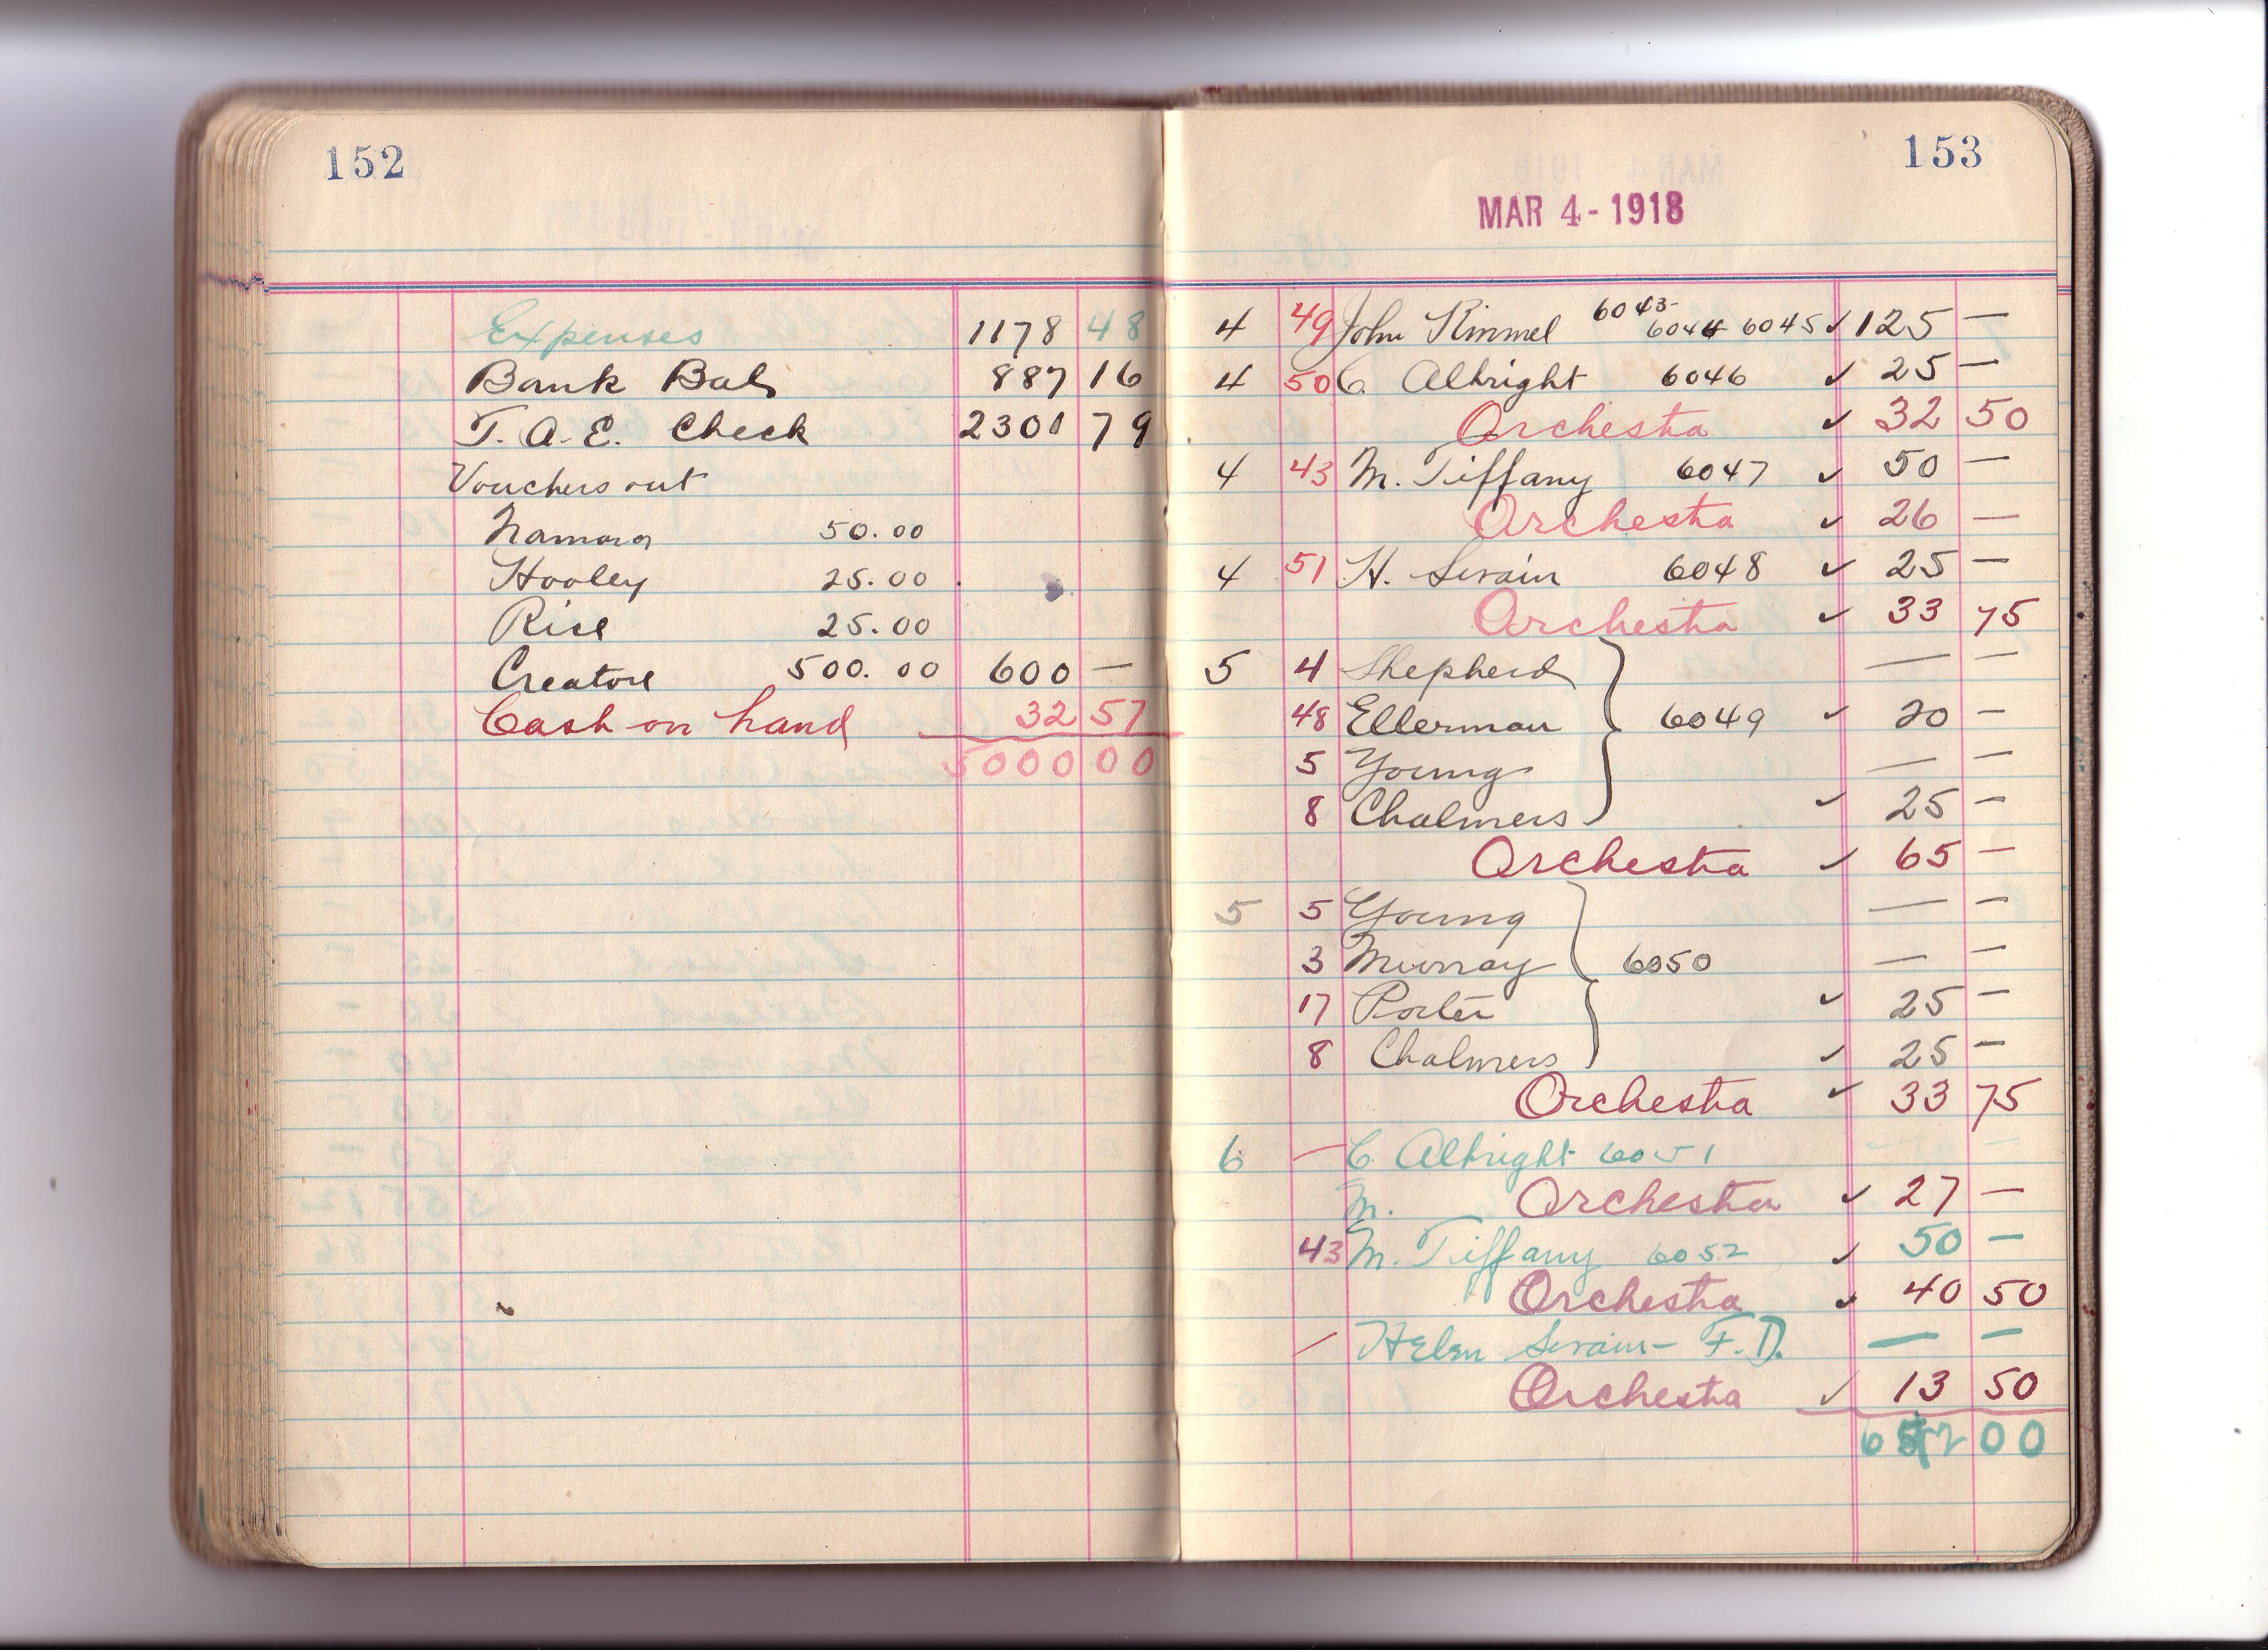 152
Expenses 1178 48
Bank Bal 887 16
T. A. E. Check 2301 79
Vouchers out
Namara 50.00
Hooley 25.00
Rice 25.00
Creatore 500.00 600 —
Cash on hand 32 57
5000 00
153
MAR 4-1918
4 49 John Kimmel 6043 6044 6045 ✓ 125 —
4 50 C. Albright 6046 ✓ 25 —
Orchestra ✓ 32 50
4 43 M. Tiffany 6047 ✓ 50 —
Orchestra ✓ 26 —
4 51 H. Swain 6048 ✓ 25 —
Orchestra ✓ 33 75
5 4 Shepherd — —
48 Ellerman 6049 ✓ 20 —
5 Young — —
8 Chalmers ✓ 25 —
Orchestra ✓ 65 —
5 5 Young — —
3 Murray 6050 — —
17 Porter ✓ 25 —
8 Chalmers ✓ 25 —
Orchestra ✓ 33 75
6 — C. Albright 6051
M. Orchestra ✓ 27 —
43 M. Tiffany 6052 ✓ 50 —
Orchestra ✓ 40 50
— Helen Swain - F. D. — —
Orchestra ✓ 13 50
00